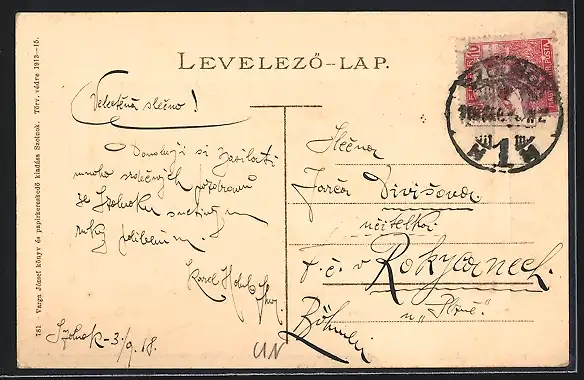 LEVELEZŐ-LAP.
Velectěná slečno!
Dovoluji si zasílati
mnoho srdečných pozdravů
ze Szolnoku s uctivým
ruky políbením.
Karel
Szolnok - 3/9. 18.
Slečna
Divišova
učitelka
t. č. v Rokycanech.
u „Plzně."
Böhmen
781 Varga József könyv és papirkereskedő kiadása Szolnok. Törv. védve 1913-15.
10
1